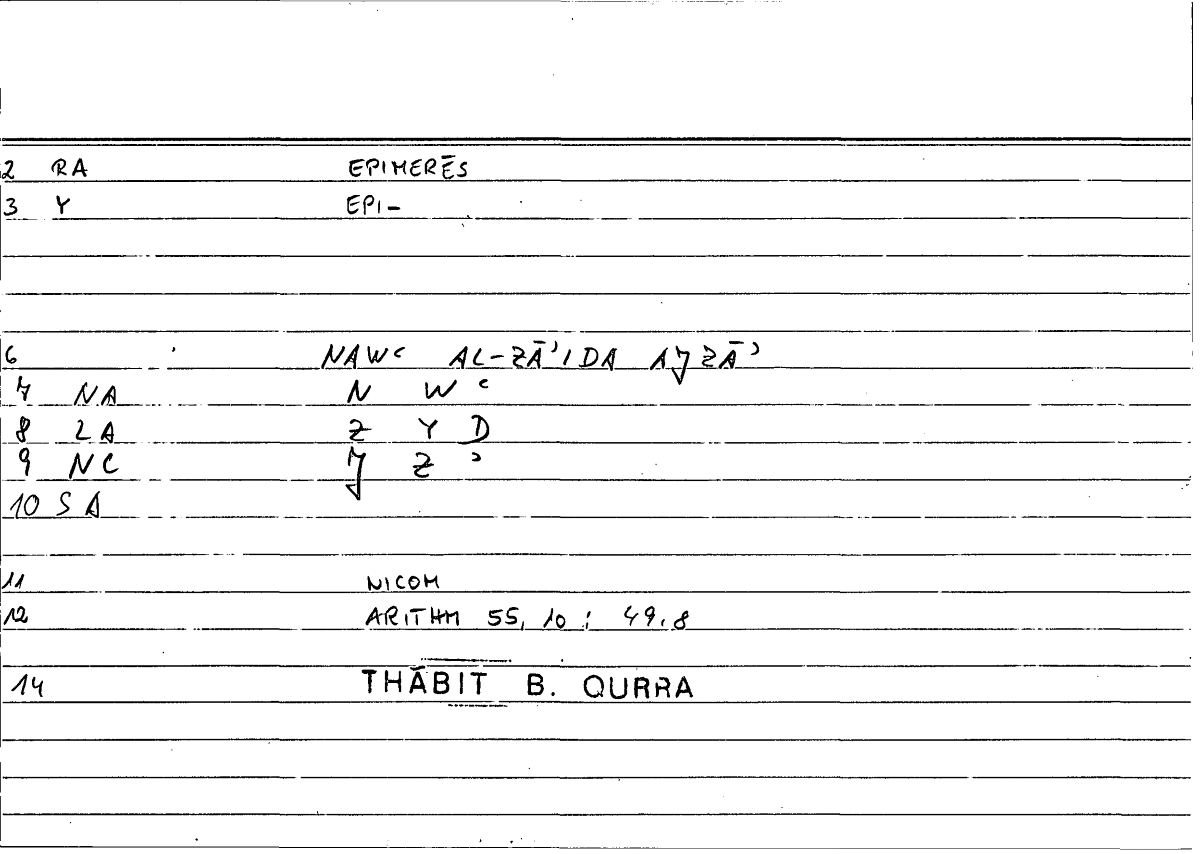 2 RA EPIMERĒS
3 Y EPI-
6 NAWʿ AL-ZĀʾIDA AJZĀʾ
7 NA N W ʿ
8 ZA Z Y D
9 NC J Z ʾ
10 SA
11 NICOM
12 ARITHM 55, 10 ; 49.8
14 THĀBIT B. QURRA